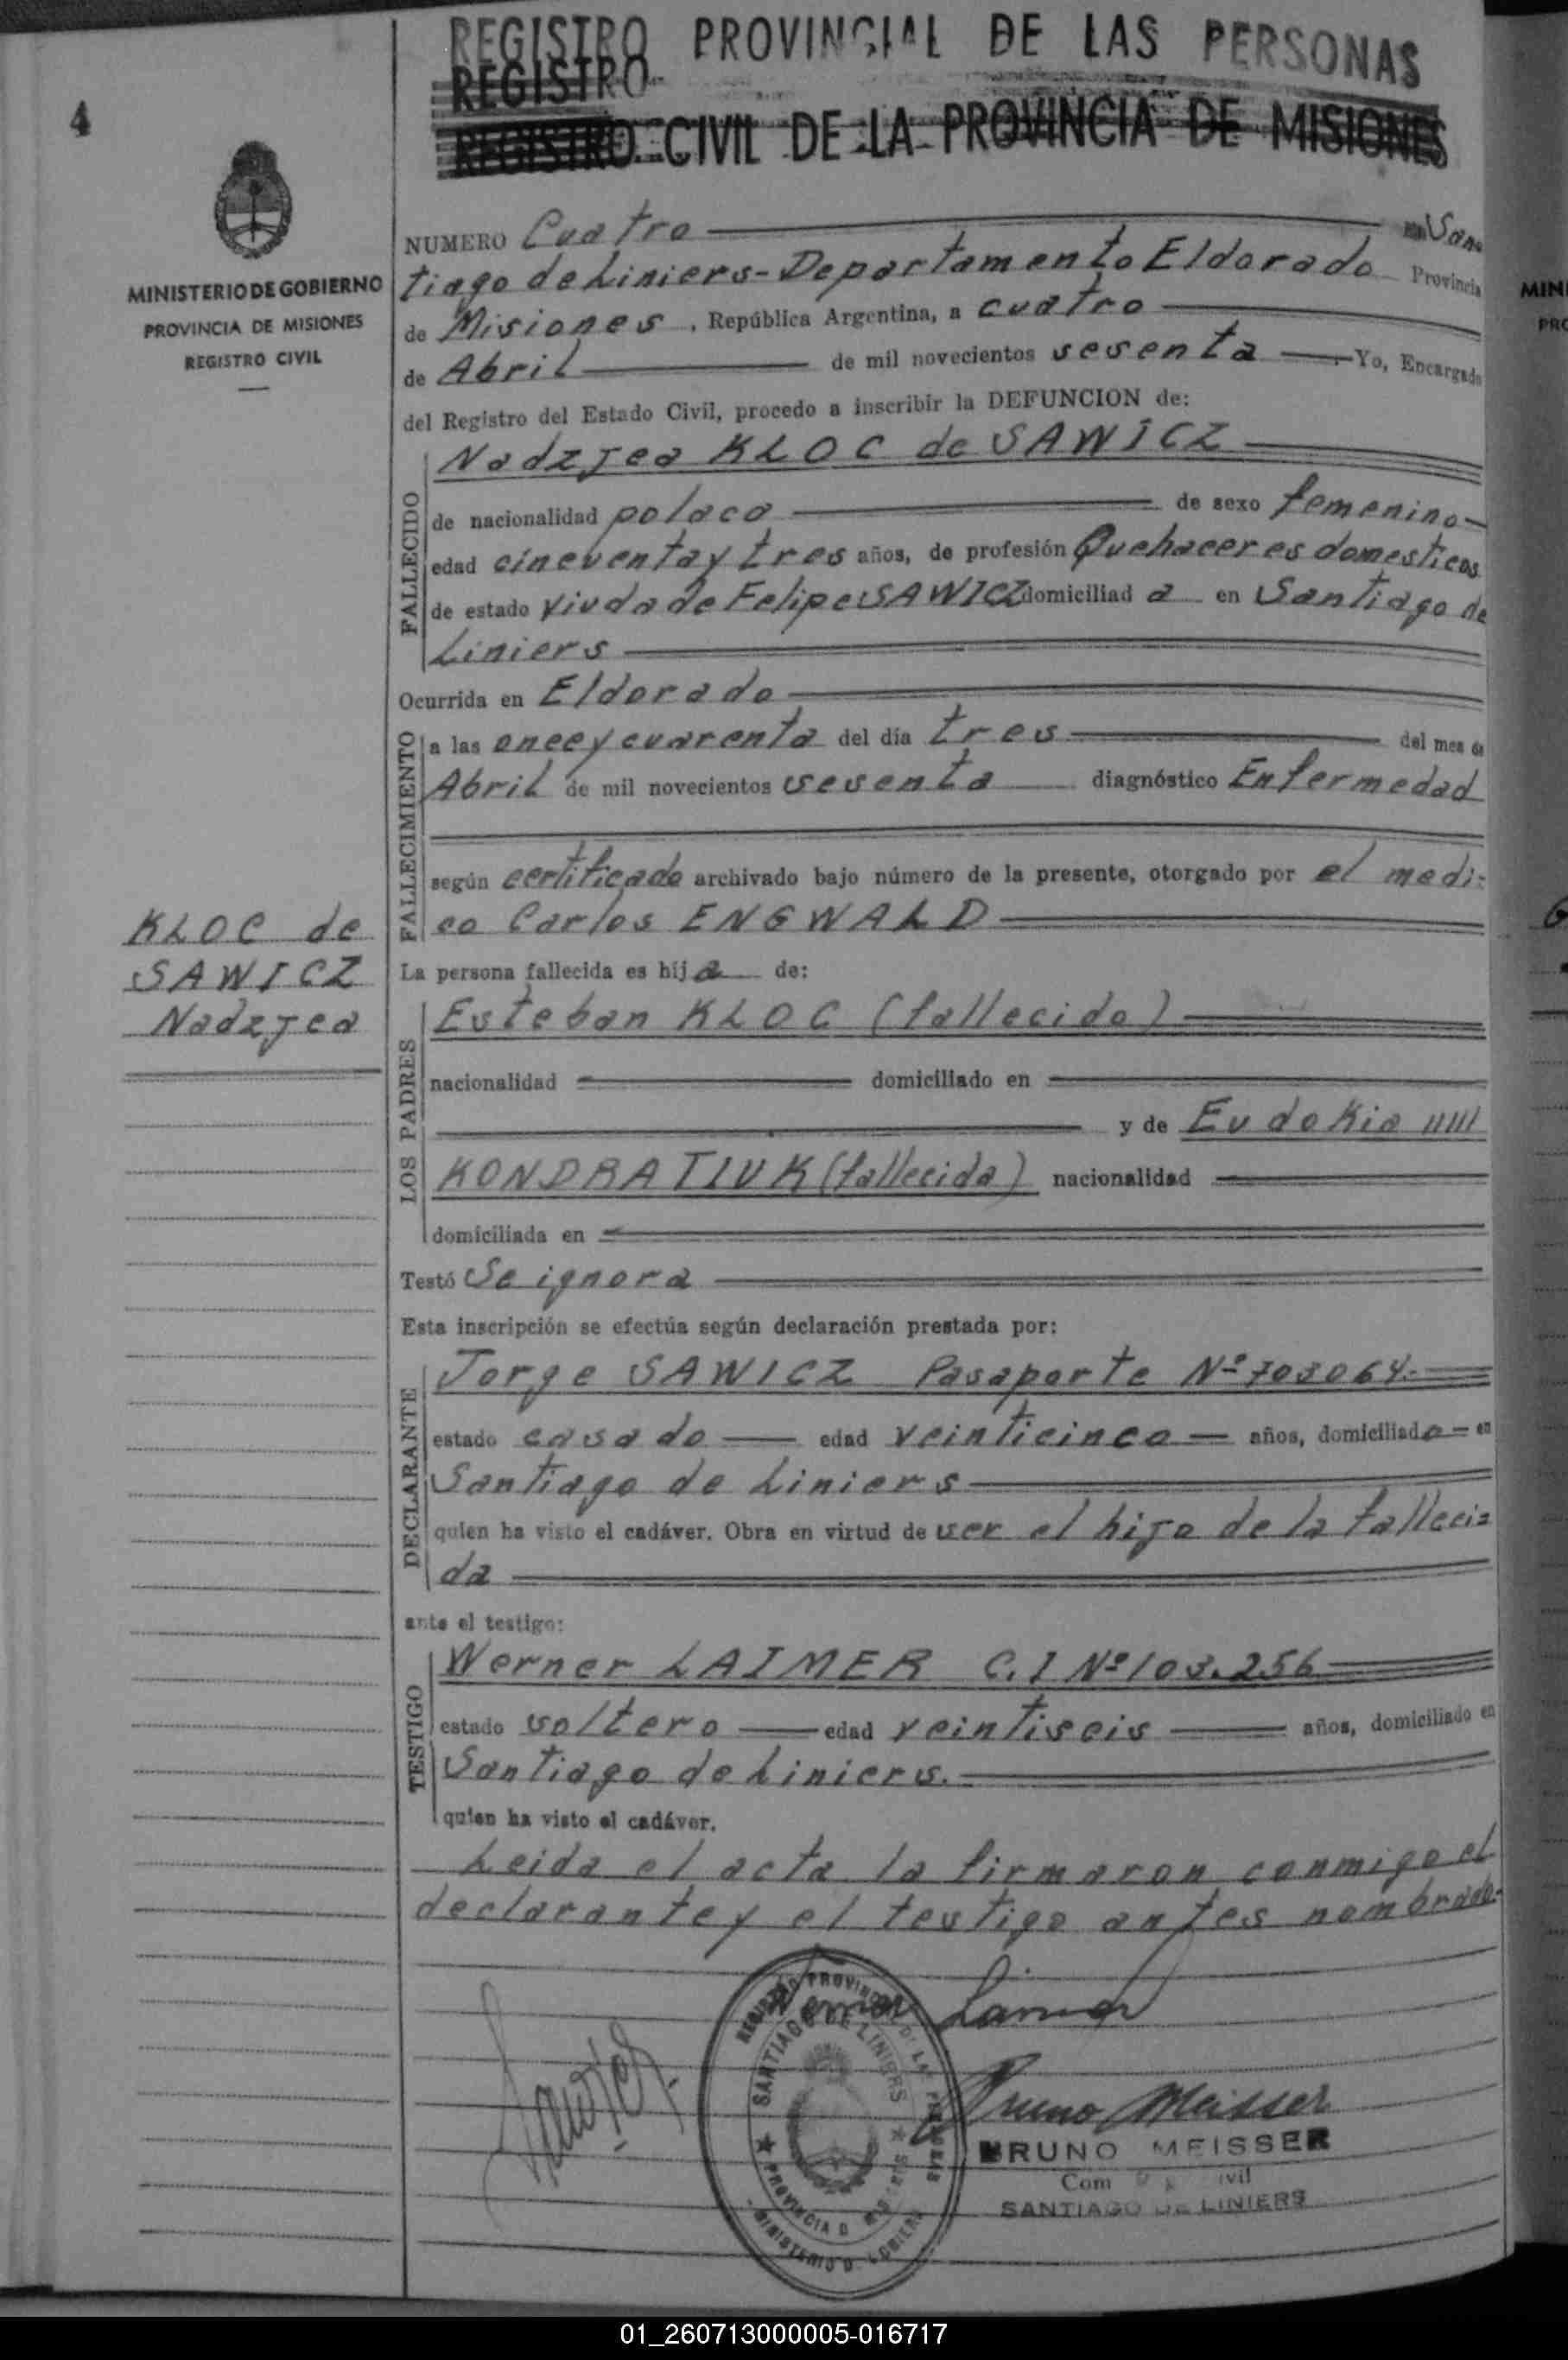 REGISTRO PROVINCIAL DE LAS PERSONAS
REGISTRO
REGISTRO CIVIL DE LA PROVINCIA DE MISIONES
4
MINISTERIO DE GOBIERNO
PROVINCIA DE MISIONES
REGISTRO CIVIL
NUMERO Cuatro San
tiago de Liniers - Departamento Eldorado Provincia
de Misiones, República Argentina, a cuatro
de Abril de mil novecientos sesenta Yo, Encargado
del Registro del Estado Civil, procedo a inscribir la DEFUNCION de:
FALLECIDO
Nadzjea KLOC de SAWICZ
de nacionalidad polaca de sexo femenino
edad cincuenta y tres años, de profesión Quehaceres domesticos
de estado viuda de Felipe SAWICZ domiciliad a en Santiago de
Liniers
Ocurrida en Eldorado
FALLECIMIENTO
a las once y cuarenta del día tres del mes de
Abril de mil novecientos sesenta diagnóstico Enfermedad
según certificado archivado bajo número de la presente, otorgado por el medi-
co Carlos ENGWALD
KLOC de
SAWICZ
Nadzjea
La persona fallecida es hij a de:
LOS PADRES
Esteban KLOC (fallecido)
nacionalidad domiciliado en
y de Eudokia
KONDRATIUK (fallecida) nacionalidad
domiciliada en
Testó Se ignora
Esta inscripción se efectúa según declaración prestada por:
DECLARANTE
Jorge SAWICZ Pasaporte Nº 703064.-
estado casado edad veinticinco años, domiciliado en
Santiago de Liniers
quien ha visto el cadáver. Obra en virtud de ser el hijo de la falleci-
da
ante el testigo:
TESTIGO
Werner LAIMER C.I Nº 103.256
estado soltero edad veintiseis años, domiciliado en
Santiago de Liniers.
quien ha visto el cadáver.
Leida el acta la firmaron conmigo el
declarante y el testigo antes nombrado.-
Werner Laimer
SANTIAGO DE LINIERS
Bruno Meisser
BRUNO MEISSER
SANTIAGO DE LINIERS
01_260713000005-016717